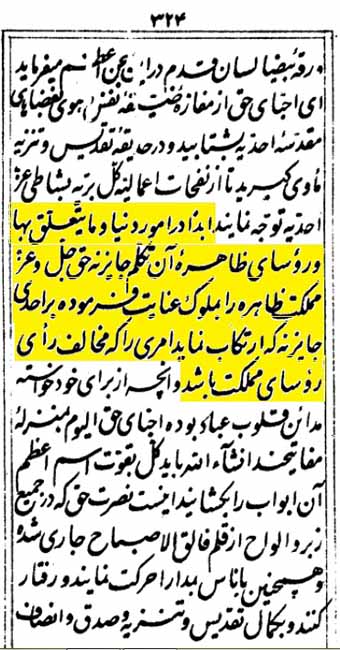 ۳۲۴
ورقهٔ بیضا لسان قدم در این سجن اعظم میفرماید
ای احبای حق از مفازهٔ ضیقهٔ نفس و هوی بفضاهای
مقدسهٔ احدیه بشتابید و در حدیقهٔ تقدیس و تنزیه
مأوی گیرید تا از نفحات اعمالیه کل بریه بشاطی عز
احدیه توجه نمایند ابدا در امور دنیا و ما یتعلق بها
و رؤسای ظاهرهٔ آن تکلم جایز نه حق جل و عز
مملکت ظاهره را بملوک عنایت فرموده بر احدی
جایز نه که ارتکاب نماید امری را که مخالف رأی
رؤسای مملکت باشد و آنچه از برای خود خواسته
مدائن قلوب عباد بوده احبای حق الیوم بمنزلهٔ
مفاتیحند انشاء الله باید کل بقوت اسم اعظم
آن ابواب را بگشایند اینست نصرت حق که در جمیع
زبر و الواح از قلم فالق الاصباح جاری شده
و همچنین با ناس بمدارا حرکت نمایند و رفتار
کنند و بکمال تقدیس و تنزیه و صدق و انصاف